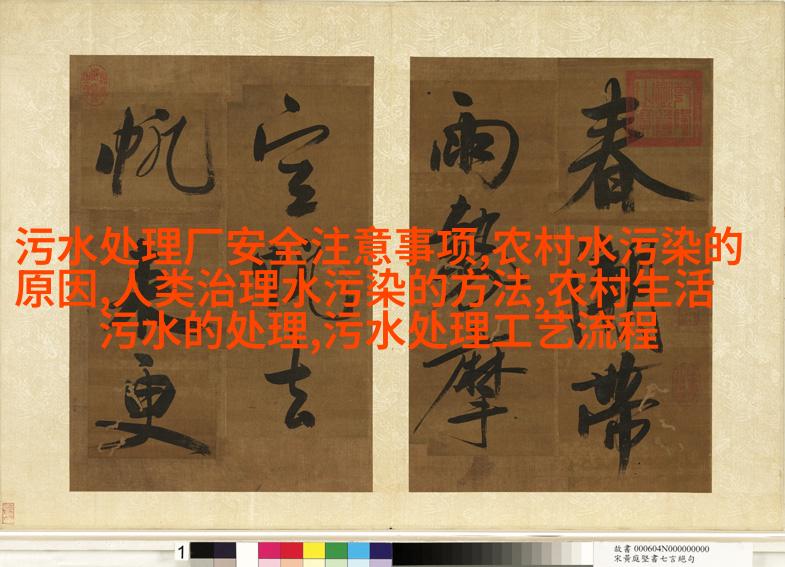 污水处理厂安全注意事项,农村水污染的
原因,人类治理水污染的方法,农村生活
污水的处理,污水处理工艺流程
春潮帶
雨勢摩
空去
帆更
1
故書 000604N000000000
宋黃庭堅書七言絕句